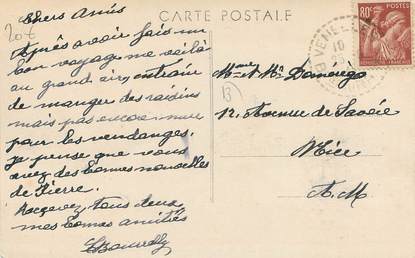 CARTE POSTALE
Chers Amis
20€
Après avoir fais un
bon voyage me voilà
au grand air entrain
de manger des raisins
mais pas encore mur
pour les vendanges.
Je pense que vous
avez des bonnes nouvelles
de Pierre.
Recevez tous deux
mes bonnes amitiés
80c
POSTES
REPUBLIQUE FRANÇAISE
10
Mme et Mr
13
12, Avenue de Savoie
Nice
A. M